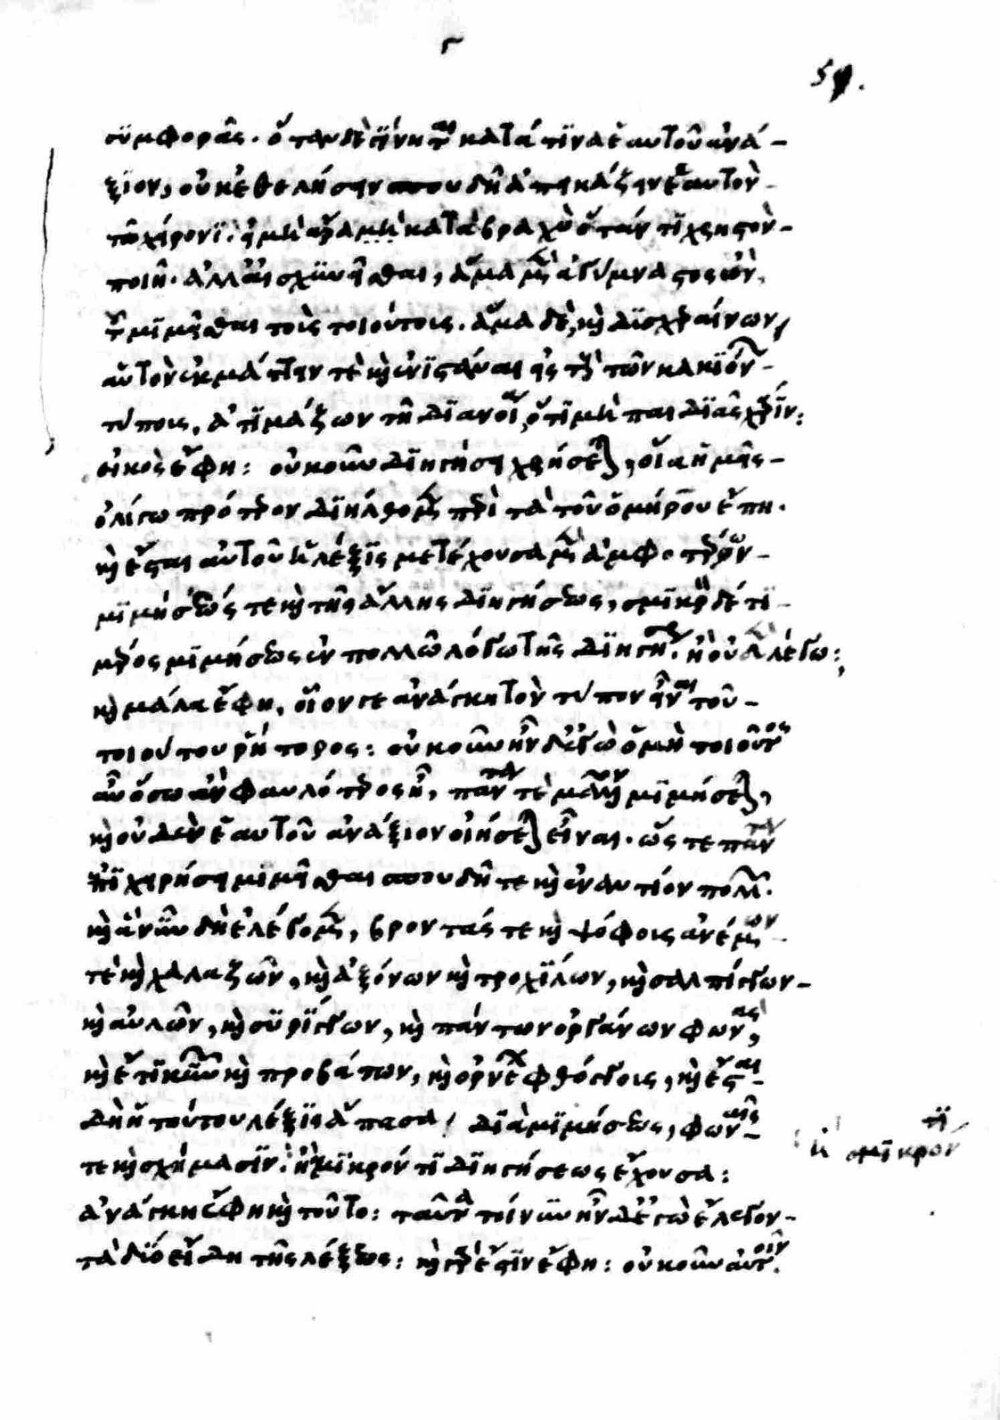 γ
59.
συμφορᾶς. ὅταν δὲ γίνηται κατά τινα ἑαυτοῦ ἀνά-
ξιον, οὐκ ἐθελήσειν σπουδῇ ἀπεικάζειν ἑαυτὸν
τῷ χείρονι. εἰ μὴ ἄρα κατὰ βραχὺ ὅταν τι χρηστὸν
ποιῇ. ἀλλ' αἰσχυνεῖσθαι, ἅμα μὲν ἀγύμναστος ὢν
τοῦ μιμεῖσθαι τοὺς τοιούτους. ἅμα δὲ, καὶ δυσχεραίνων
αὑτὸν ἐκμάττειν τε καὶ ἐνιστάναι εἰς τοὺς τῶν κακιόνων
τύπους, ἀτιμάζων τῇ διανοίᾳ, ὅτι μὴ παιδιᾶς χάριν:
εἰκὸς ἔφη: οὐκοῦν διηγήσῃ χρήσεται, οἵᾳ ἡμεῖς
ὀλίγῳ πρότερον διήλθομεν περὶ τὰ τοῦ ὁμήρου ἔπη.
καὶ ἔσται αὐτοῦ ἡ λέξις μετέχουσα μὲν ἀμφοτέρων
μιμήσεώς τε καὶ τῆς ἄλλης διηγήσεως, σμικρὸν δέ τι
μέρος μιμήσεως ἐν πολλῷ λόγῳ τῆς διηγήσεως. ἢ οὐδὲν λέγω:
καὶ μάλα ἔφη, οἷόν γε ἀνάγκη τὸν τύπον εἶναι τοῦ
τοιούτου ῥήτορος: οὐκοῦν ἦν δ' ἐγὼ ὁ μὴ τοιοῦτος
αὖ ὅσῳ ἂν φαυλότερος ᾖ, πάντα τε μᾶλλον μιμήσεται,
καὶ οὐδὲν ἑαυτοῦ ἀνάξιον οἰήσεται εἶναι. ὥστε πάντα
ἐπιχειρήσει μιμεῖσθαι σπουδῇ τε καὶ ἐναντίον πολλῶν.
καὶ ἃ νῦν δὴ ἐλέγομεν, βροντάς τε καὶ ψόφους ἀνέμων
τε καὶ χαλαζῶν, καὶ ἀξόνων καὶ τροχιλίων, καὶ σαλπίγγων
καὶ αὐλῶν, καὶ συρίγγων, καὶ πάντων ὀργάνων φωνάς,
καὶ ἔτι κυνῶν καὶ προβάτων, καὶ ὀρνέων φθόγγους, καὶ ἔσται
δὴ ἡ τούτου λέξις ἅπασα διὰ μιμήσεως, φωναῖς
τε καὶ σχήμασιν. ἢ μικρόν τι διηγήσεως ἔχουσα:
ἢ σμικρόν τι
ἀνάγκη ἔφη καὶ τοῦτο: ταῦτα τοίνυν ἦν δ' ἐγὼ ἔλεγον
τὰ δύο εἴδη τῆς λέξεως: καὶ γὰρ ἔστιν ἔφη: οὐκοῦν αὐτοῖν